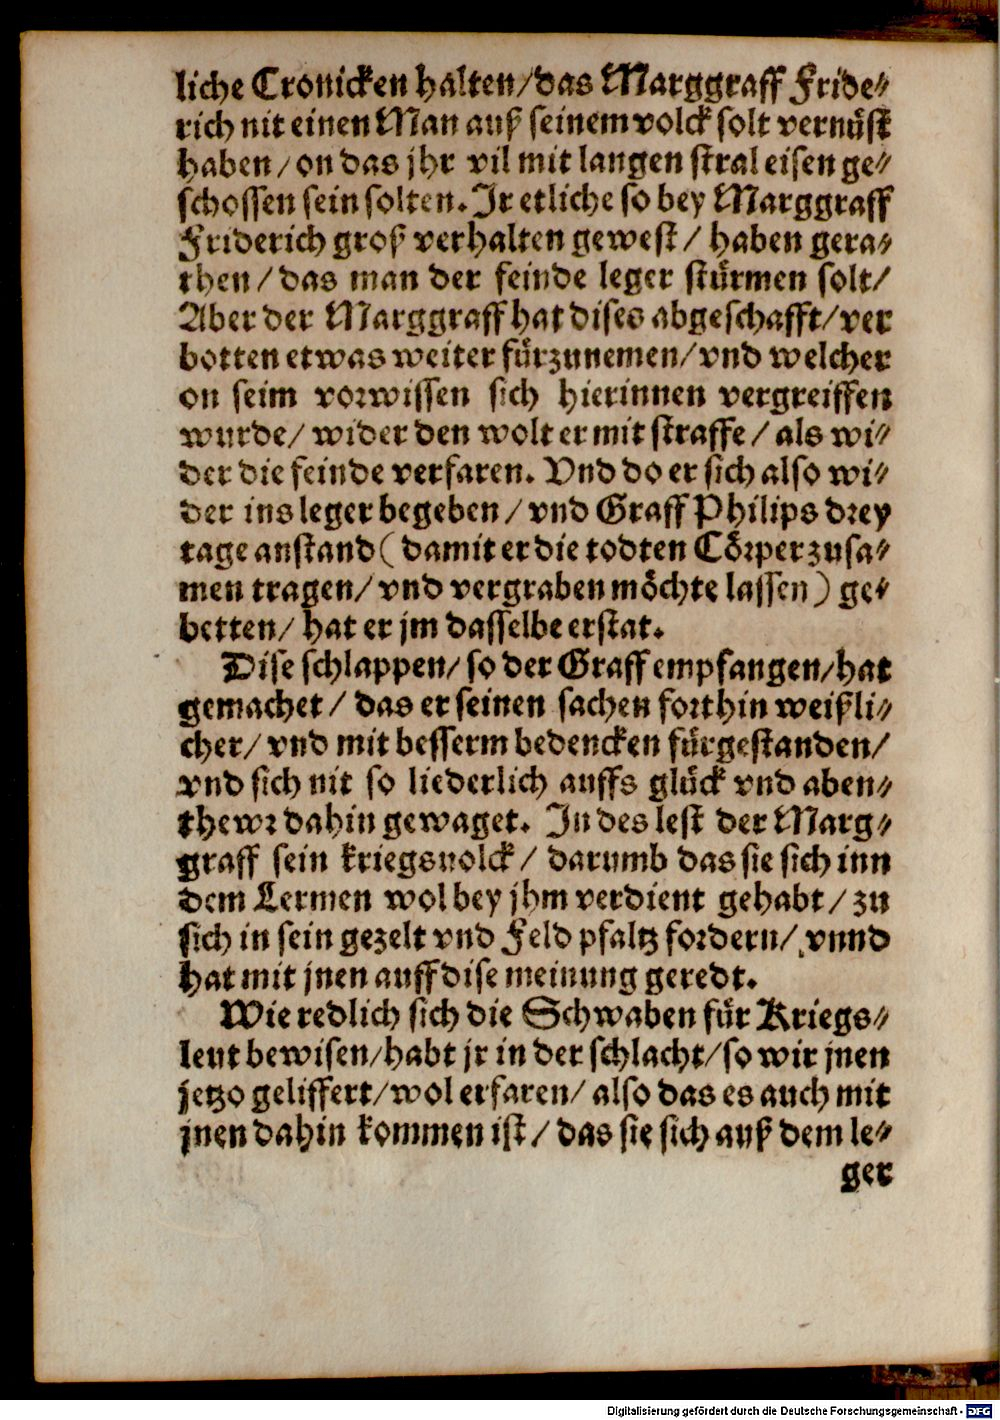 liche Cronicken halten/das Marggraff Fride⸗
rich nit einen Man auß seinem volck solt vernüst
haben/on das jhr vil mit langen stral eisen ge⸗
schossen sein solten. Ir etliche so bey Marggraff
Friderich groß verhalten gewest/ haben gera⸗
then/das man der feinde leger stürmen solt/
Aber der Marggraff hat dises abgeschafft/ver
botten etwas weiter fürzunemen/vnd welcher
on seim vorwissen sich hierinnen vergreiffen
wurde/ wider den wolt er mit straffe/ als wi⸗
der die feinde verfaren. Vnd do er sich also wi⸗
der ins leger begeben/vnd Graff Philips drey
tage anstand(damit er die todten Cörper zusa⸗
men tragen/vnd vergraben möchte lassen) ge⸗
betten/ hat er jm dasselbe erstat.
Dise schlappen/so der Graff empfangen/hat
gemachet/ das er seinen sachen forthin weißli⸗
cher/vnd mit besserm bedencken fürgestanden/
vnd sich nit so liederlich auffs glück vnd aben⸗
thewr dahin gewaget. In des lest der Marg⸗
graff sein kriegsuolck/ darumb das sie sich inn
dem Lermen wol bey jhm verdient gehabt/zu
sich in sein gezelt vnd Feld pfaltz fordern/vnnd
hat mit jnen auff dise meinung geredt.
Wie redlich sich die Schwaben für Kriegs⸗
leut bewisen/habt jr in der schlacht/so wir jnen
jetzo geliffert/wol erfaren/ also das es auch mit
jnen dahin kommen ist/das sie sich auß dem le⸗
ger
Digitalisierung gefördert durch die Deutsche Forschungsgemeinschaft - DFG